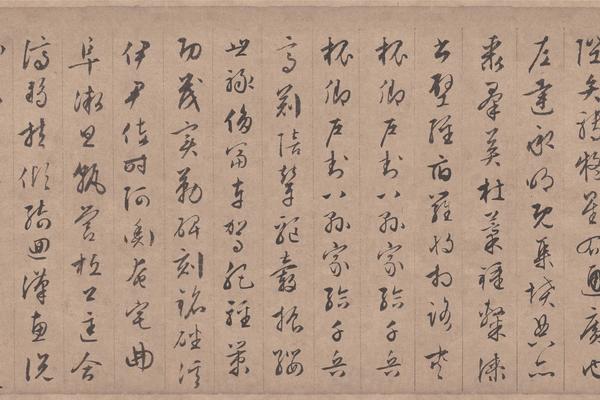 陛弁轉疑星右通廣內
左達承明既集墳典亦
聚羣英杜藁鍾隸漆
書壁經府羅將相路俠
槐卿戶封八縣家給千兵
槐卿戶封八縣家給千兵
高冠陪輦驅轂振纓
世祿侈富車駕肥輕策
功茂實勒碑刻銘磻溪
伊尹佐時阿衡奄宅曲
阜微旦孰營桓公匡合
濟弱扶傾綺迴漢惠說